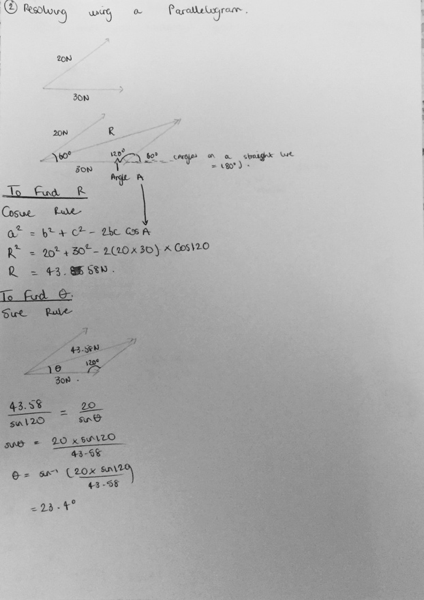 ② Resolving using a Parallelogram.
20N
30N
20N
R
60°
120°
60°
(Angles on a straight line
= 180°).
30N
Angle A
To Find R
Cosine Rule
a² = b² + c² - 2bc cos A
R² = 20² + 30² - 2(20 x 30) x Cos120
R = 43.58N.
To Find θ.
Sine Rule
43.58N
θ
120°
30N.
43.58 / sin120 = 20 / sinθ
sinθ = 20 x sin120 / 43.58
θ = sin⁻¹ (20 x sin120 / 43.58)
= 23.4°